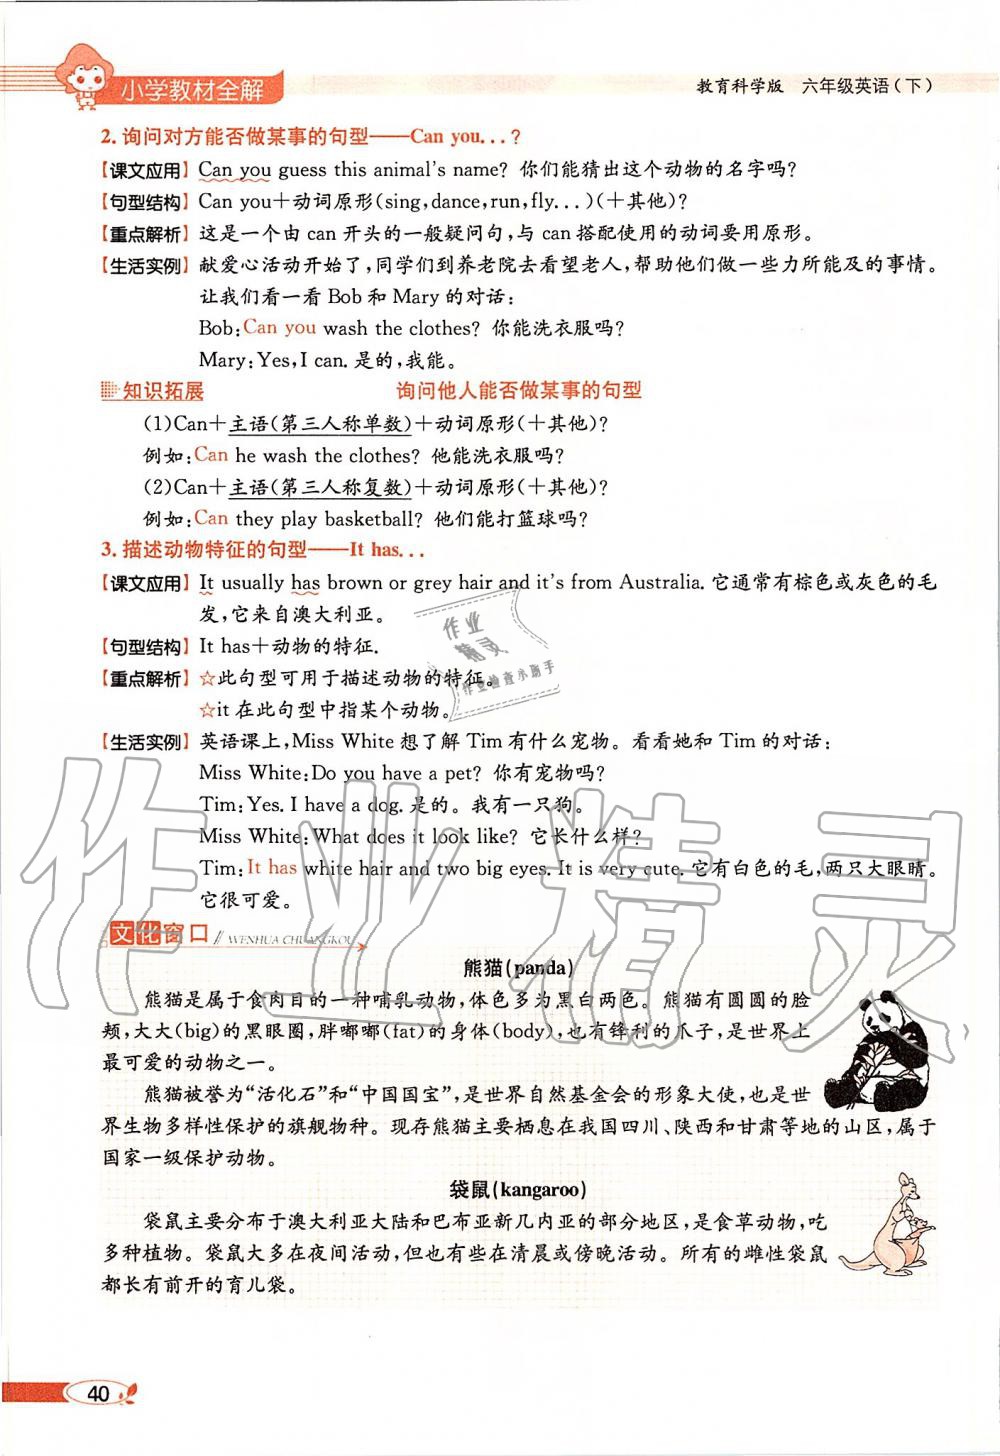 小学教材全解
教育科学版 六年级英语(下)
2. 询问对方能否做某事的句型——Can you...?
【课文应用】Can you guess this animal's name? 你们能猜出这个动物的名字吗?
【句型结构】Can you+动词原形(sing,dance,run,fly...)(+其他)?
【重点解析】这是一个由 can 开头的一般疑问句,与 can 搭配使用的动词要用原形。
【生活实例】献爱心活动开始了,同学们到养老院去看望老人,帮助他们做一些力所能及的事情。
让我们看一看 Bob 和 Mary 的对话:
Bob:Can you wash the clothes? 你能洗衣服吗?
Mary:Yes,I can. 是的,我能。
知识拓展 询问他人能否做某事的句型
(1)Can+主语(第三人称单数)+动词原形(+其他)?
例如:Can he wash the clothes? 他能洗衣服吗?
(2)Can+主语(第三人称复数)+动词原形(+其他)?
例如:Can they play basketball? 他们能打篮球吗?
3. 描述动物特征的句型——It has...
【课文应用】It usually has brown or grey hair and it's from Australia. 它通常有棕色或灰色的毛
发,它来自澳大利亚。
【句型结构】It has+动物的特征.
【重点解析】☆此句型可用于描述动物的特征。
☆it 在此句型中指某个动物。
【生活实例】英语课上,Miss White 想了解 Tim 有什么宠物。看看她和 Tim 的对话:
Miss White:Do you have a pet? 你有宠物吗?
Tim:Yes. I have a dog. 是的。我有一只狗。
Miss White:What does it look like? 它长什么样?
Tim:It has white hair and two big eyes. It is very cute. 它有白色的毛,两只大眼睛。
它很可爱。
文化窗口 // WENHUA CHUANGKOU
熊猫(panda)
熊猫是属于食肉目的一种哺乳动物,体色多为黑白两色。熊猫有圆圆的脸
颊,大大(big)的黑眼圈,胖嘟嘟(fat)的身体(body),也有锋利的爪子,是世界上
最可爱的动物之一。
熊猫被誉为“活化石”和“中国国宝”,是世界自然基金会的形象大使,也是世
界生物多样性保护的旗舰物种。现存熊猫主要栖息在我国四川、陕西和甘肃等地的山区,属于
国家一级保护动物。
袋鼠(kangaroo)
袋鼠主要分布于澳大利亚大陆和巴布亚新几内亚的部分地区,是食草动物,吃
多种植物。袋鼠大多在夜间活动,但也有些在清晨或傍晚活动。所有的雌性袋鼠
都长有前开的育儿袋。
40
作业精灵
作业
精灵
作业检查小助手